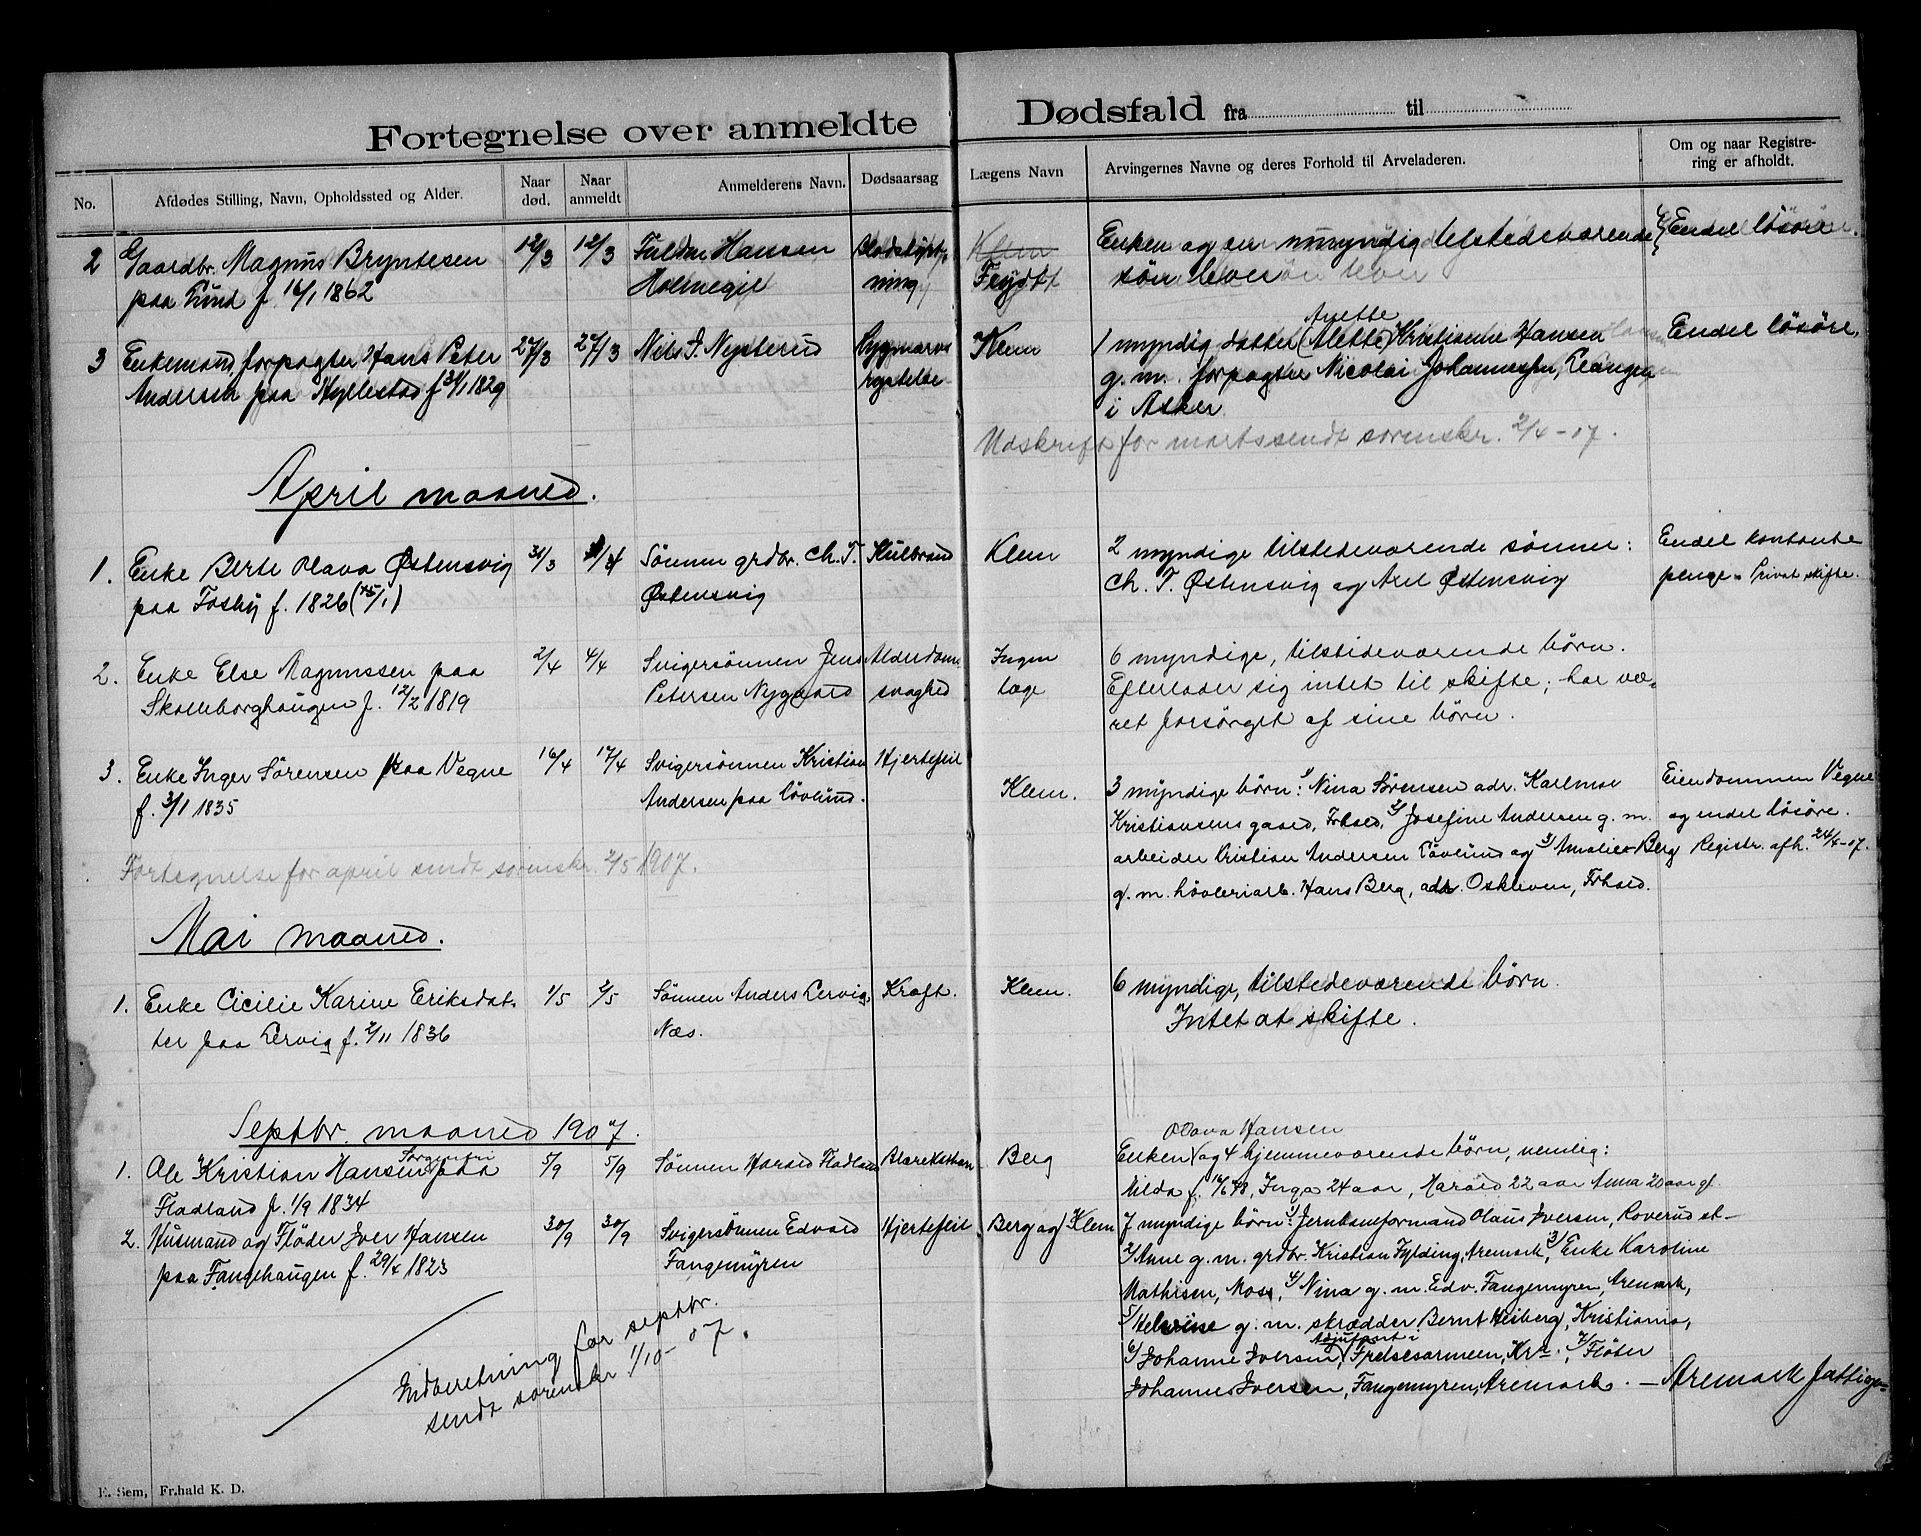 Fortegnelse over anmeldte Dødsfald fra til
No. Afdødes Stilling, Navn, Opholdssted og Alder. Naar død. Naar anmeldt Anmelderens Navn. Dødsaarsag Lægens Navn Arvingernes Navne og deres Forhold til Arveladeren. Om og naar Registrering er afholdt.
2 Gaardbr. Magnus Bryntesen 12/3 12/3 Hansen Klem Enken og en umyndig tilstedeværende Endel lösöre.
paa Lund f. 16/1 1862 Holmegil ning Frydtt sön lever
3 Enkemand, forpagter Hans Peter 27/3 27/3 Nils J. Nysterud Rygmarvs Klem 1 myndig datter (Alette) Anette Kristiane Hansen Endel lösöre.
Andersen paa Hyllestad f. 31/1 1829 rystelse g. m. forpagter Nicolai Johannessen,
i Asker
Udskrift for marts sendt sorenskr. 2/4 - 07.
April maaned.
1. Enke Berte Olava Østensvig 31/3 Sönnen grdbr. Ch. T. Kulbrand Klem 2 myndige tilstedeværende sönner: Endel kontante
paa Fosby f. 1826 Østensvig Ch. T. Østensvig og Axel Østensvig penge. Privat skifte.
2. Enke Else Magnussen paa 2/4 4/4 Svigersönnen Jens Alderdoms Ingen 6 myndige, tilstedeværende börn.
Skolleborghaugen f. 12/2 1819 Petersen Nygaard svaghed læge Efterlader sig intet til skifte; har væ-
ret forsörget af sine börn.
3. Enke Inger Sörensen paa Vegne 16/4 17/4 Svigersönnen Kristian Hjertefeil Klem. 3 myndige börn: 1/ Nina Sörensen adr. Karlmoe Eiendommen Vegne
f. 3/1 1835 Andersen paa Lövlund. Kristiansens gaard, Frhald, 2/ Josefine Andersen g. m. og endel lösöre.
arbeider Kristian Andersen Lövlund og 3/ Amalie Berg Registr. afh. 24/4-07.
Fortegnelse for april sendt sorenskr. 2/5 1907.
g. m. hövleriarb. Hans Berg, adr. Oskleven, Frhald.
Mai maaned.
1. Enke Cicilie Karine Eriksdat- 1/5 2/5 Sönnen Anders Lervig Kræft. Klem. 6 myndige, tilstedeværende börn.
ter paa Lervig f. 2/11 1836 Næs. Intet at skifte.
Septbr. maaned 1907.
Olava Hansen
1. Ole Kristian Hansen Sorgenfri paa 5/9 5/9 Sönnen Harald Fladland Blærekatharr Berg Enken og 4 hjemmeværende börn, nemlig:
Fladland f. 1/9 1834 Hilda f. Inga 24 aar, Harald 22 aar Anna 20 aar gl.
2. Husmand og Fløder Iver Hansen 30/9 30/9 Svigersönnen Edvard Hjertefeil Berg og Klem 7 myndige börn: 1/ Jernbaneformand Olaus Iversen, Roverud st-
paa Fangehaugen f. 29/4 1823 Fangemyren 2/ Anne g. m. grdbr. Kristian Fylding, Aremark, 3/ Enke Karoline
Mathisen, Moss, 4/ Nina g. m. Edv. Fangemyren, Aremark,
5/ Helerine g. m. skrædder Bernt Heiberg, Kristiania,
6/ Johanne Iversen, Adjutant i Frelsesarmeen, Kra., 7/ Fløter
Johannes Iversen, Fangemyren, Aremark. — Aremark
Indberetning for septbr.
sendt sorenskr 1/10 - 07.
E. Sem, Fr.hald K. D.